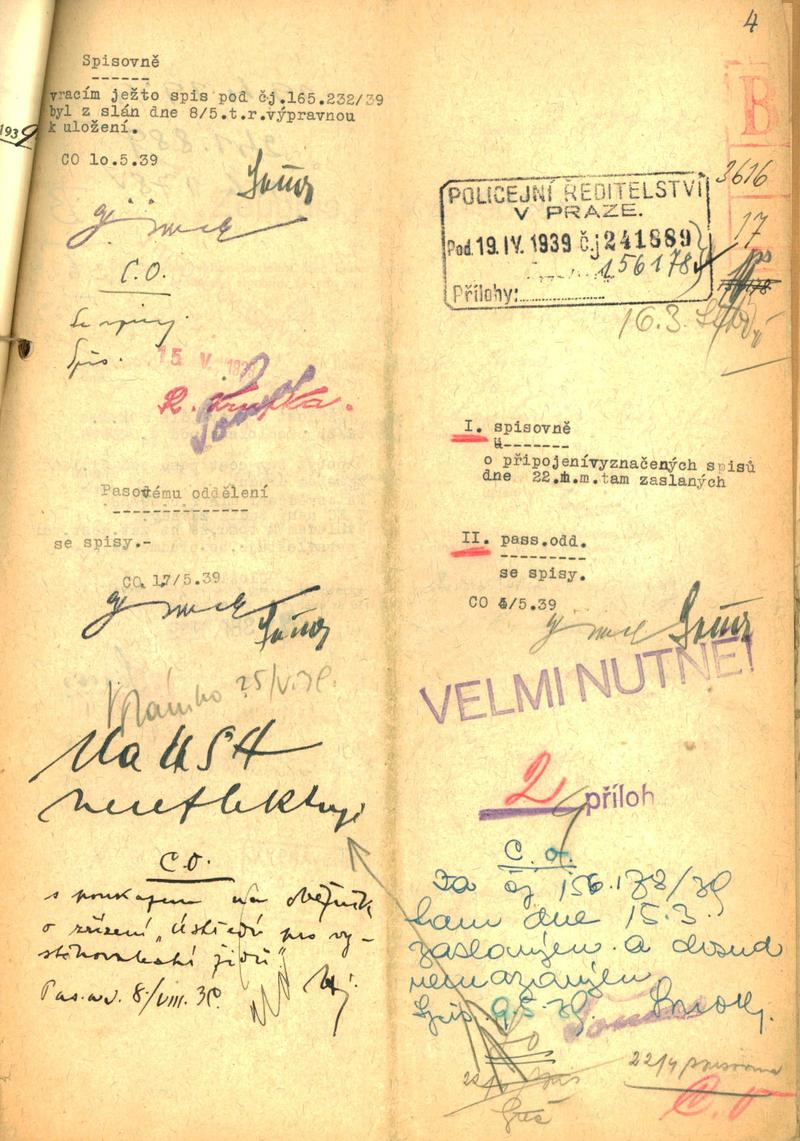 Spisovně
vracím ježto spis pod čj.165.232/39
byl z slán dne 8/5.t.r.výpravnou
k uložení.
1939
CO 1o.5.39
C.O.
Se spisy.
Spis.
15 V. 1939
R. Krupka.
Pasovému oddělení
se spisy.-
CO 17/5.39
25/V.39.
Na USA
nereflektuji
C.O.
s poukazem na oběžník
o zřízení „Ústředí pro vy-
stěhovalectví židů"
Pas. 8./VIII. 39
4
B
3616
17
POLICEJNÍ ŘEDITELSTVÍ
V PRAZE.
Pod. 19. IV. 1939 čj 241889
156178
Přílohy:
16.3.
I. spisovně
o připojenívyznačených spisů
dne 22.m.m.tam zaslaných
II. pass.odd.
se spisy.
CO 4/5.39
VELMI NUTNÉ!
2 příloh
C.O.
Za čj 156.178/39
tam dne 15.3.
zaslaným a dosud
nenalezeným
Spis. 9.5.39.
22/4 spisovna
C.O